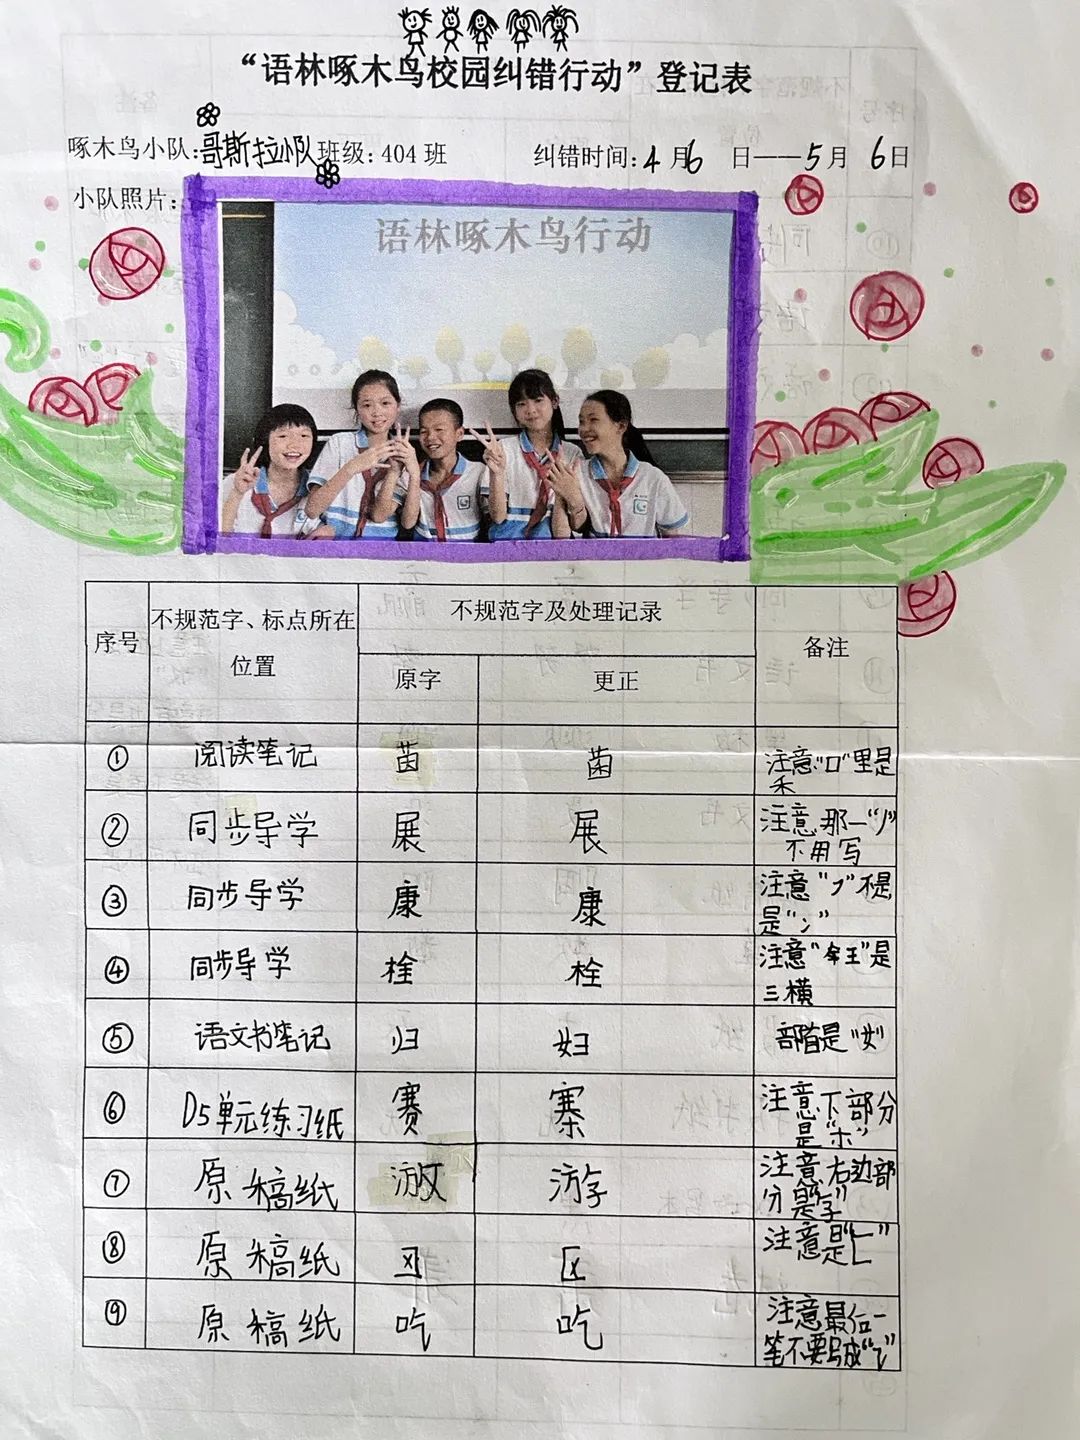 “语林啄木鸟校园纠错行动”登记表
啄木鸟小队:哥斯拉小队 班级:404班 纠错时间:4月6日——5月6日
小队照片:
语林啄木鸟行动
序号 不规范字、标点所在位置 不规范字及处理记录 备注
原字 更正
① 阅读笔记 菌 注意“口”里是禾
② 同步导学 展 注意那一“丿”不用写
③ 同步导学 康 康
④ 同步导学 栓 是三横
⑤ 语文书笔记 归 妇 部首是“女”
⑥ D5单元练习纸 赛 寨 注意下部分是“木”
⑦ 原稿纸 游 注意右边部分是
⑧ 原稿纸 区 注意是“乚”
⑨ 原稿纸 吃 吃 注意最后一笔不要写成